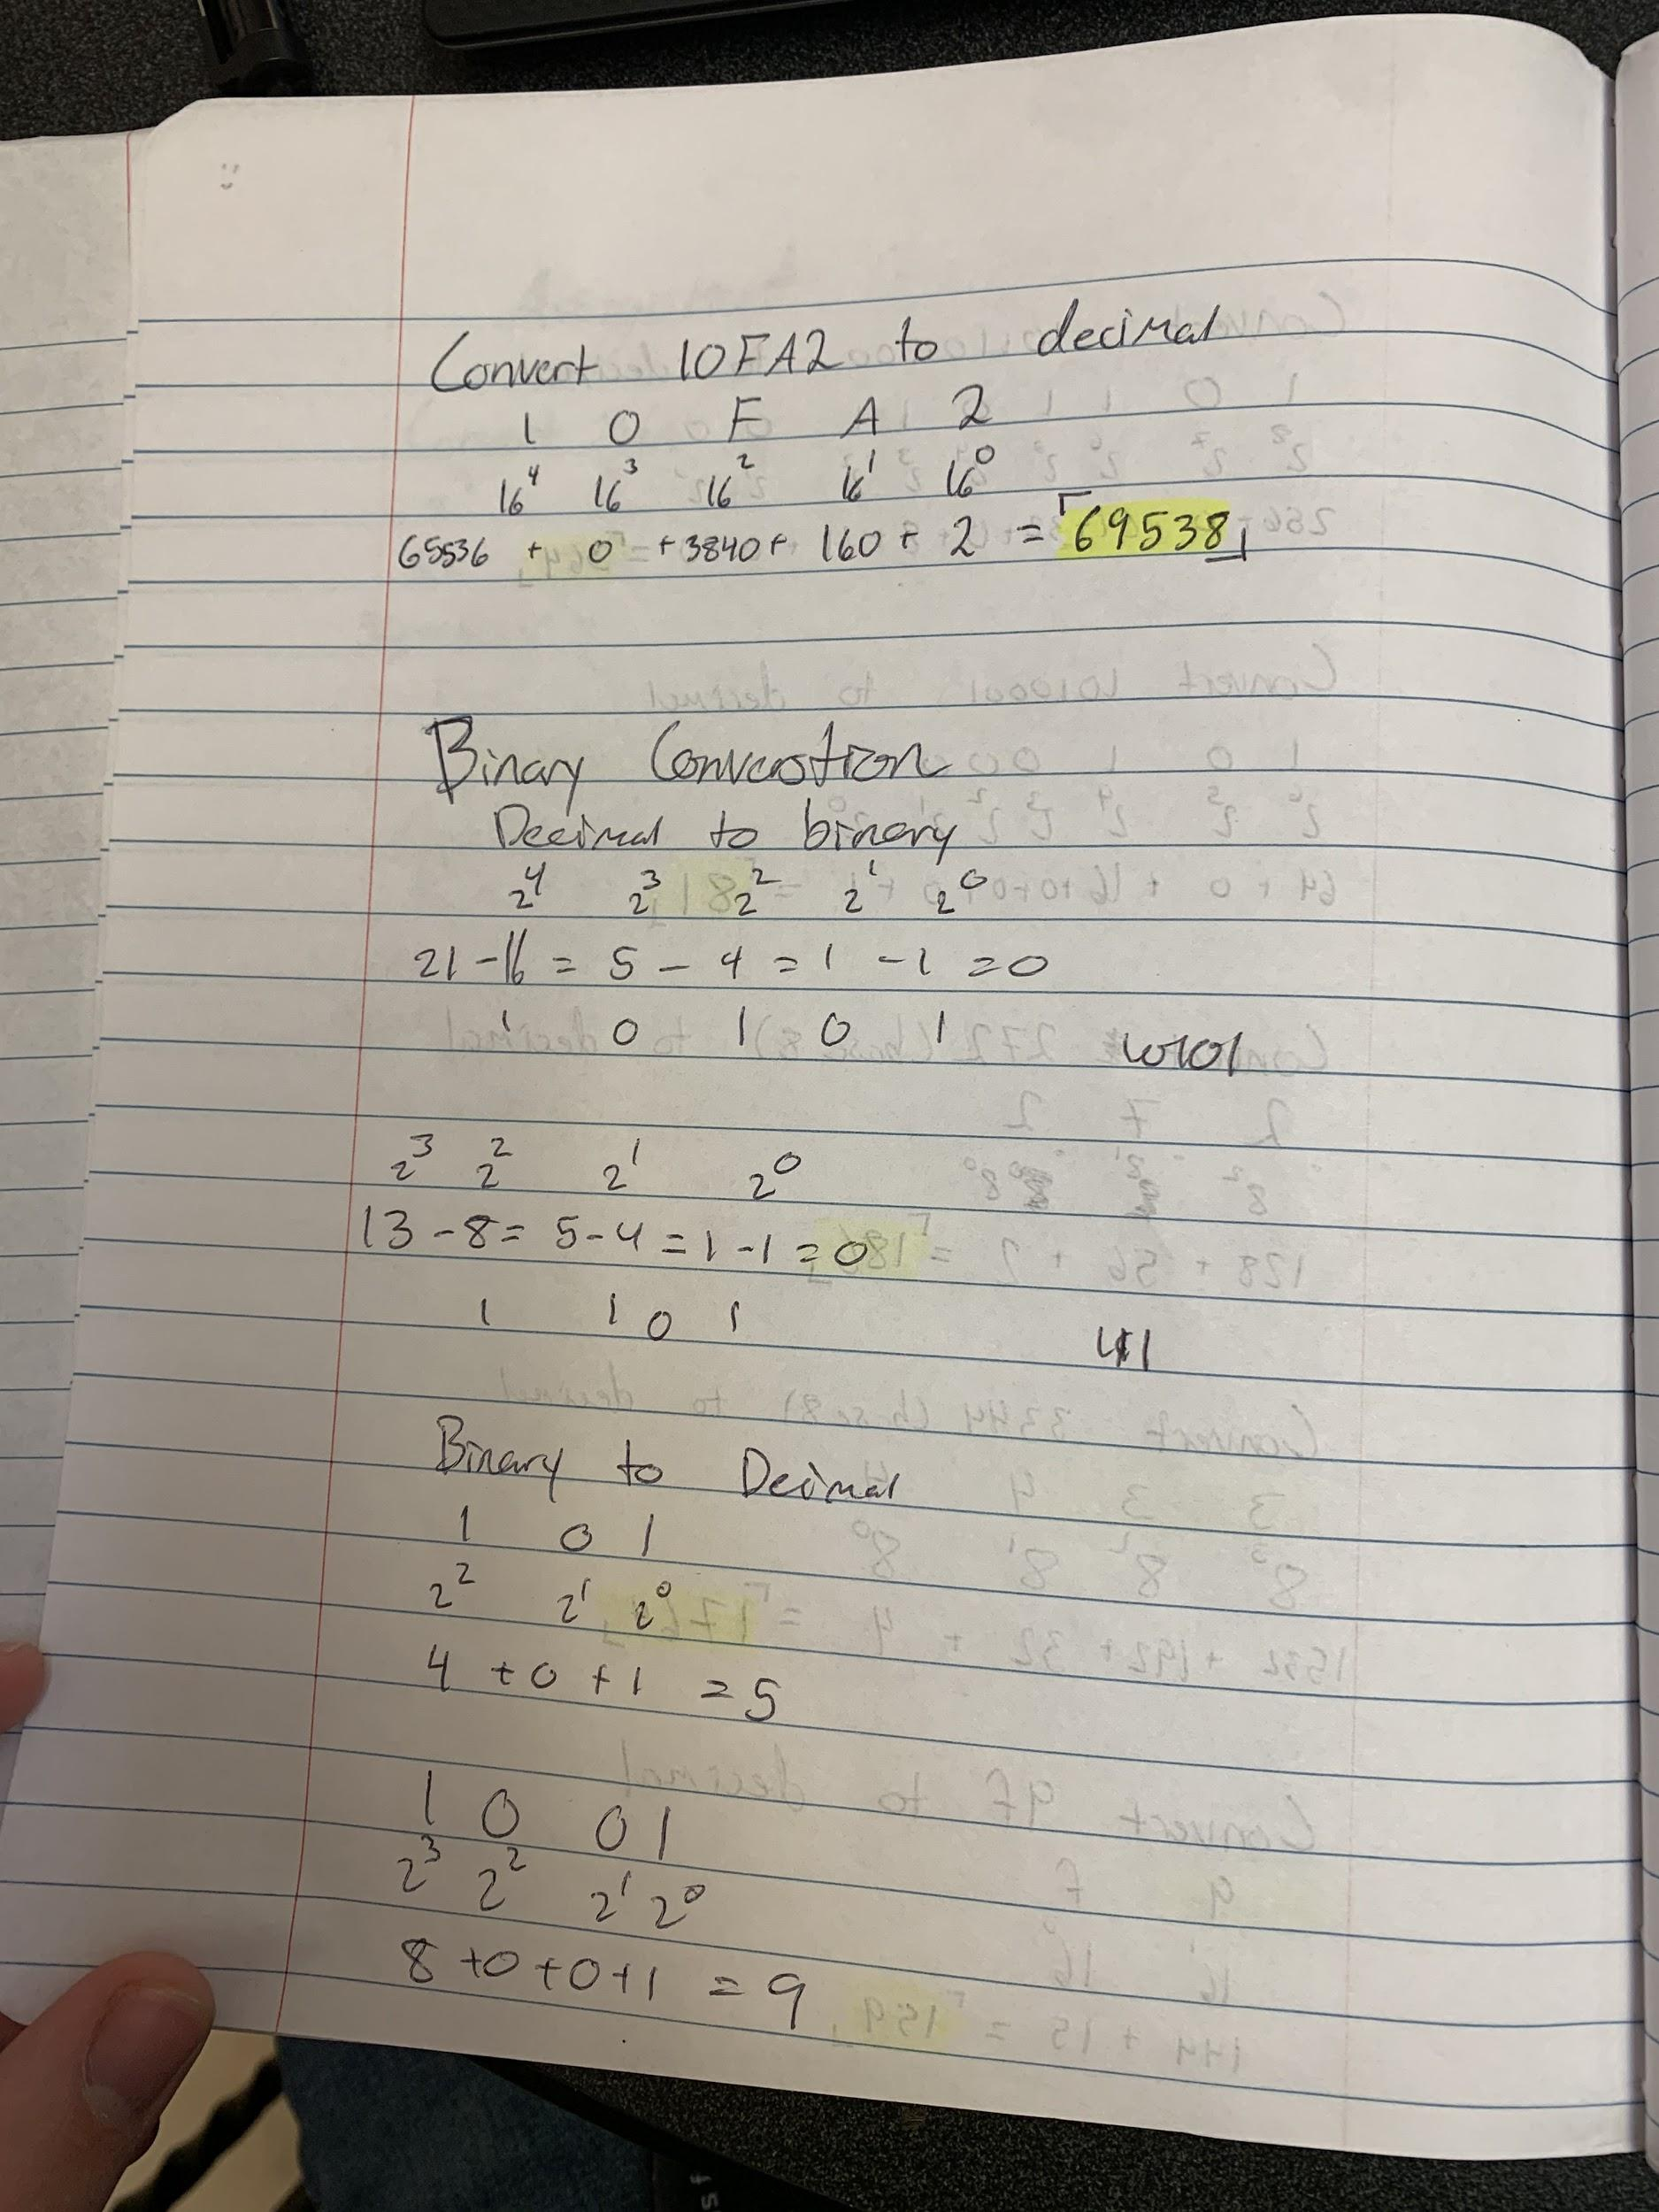 Convert 10FA2 to decimal
1 0 F A 2
16⁴ 16³ 16² 16¹ 16⁰
65536 + 0 + 3840 + 160 + 2 = 69538
Binary Converstion
Decimal to binary
2⁴ 2³ 2² 2¹ 2⁰
21 - 16 = 5 - 4 = 1 - 1 = 0
1 0 1 0 1 10101
2³ 2² 2¹ 2⁰
13 - 8 = 5 - 4 = 1 - 1 = 0
1 1 0 1
Binary to Decimal
1 0 1
2² 2¹ 2⁰
4 + 0 + 1 = 5
1 0 0 1
2³ 2² 2¹ 2⁰
8 + 0 + 0 + 1 = 9